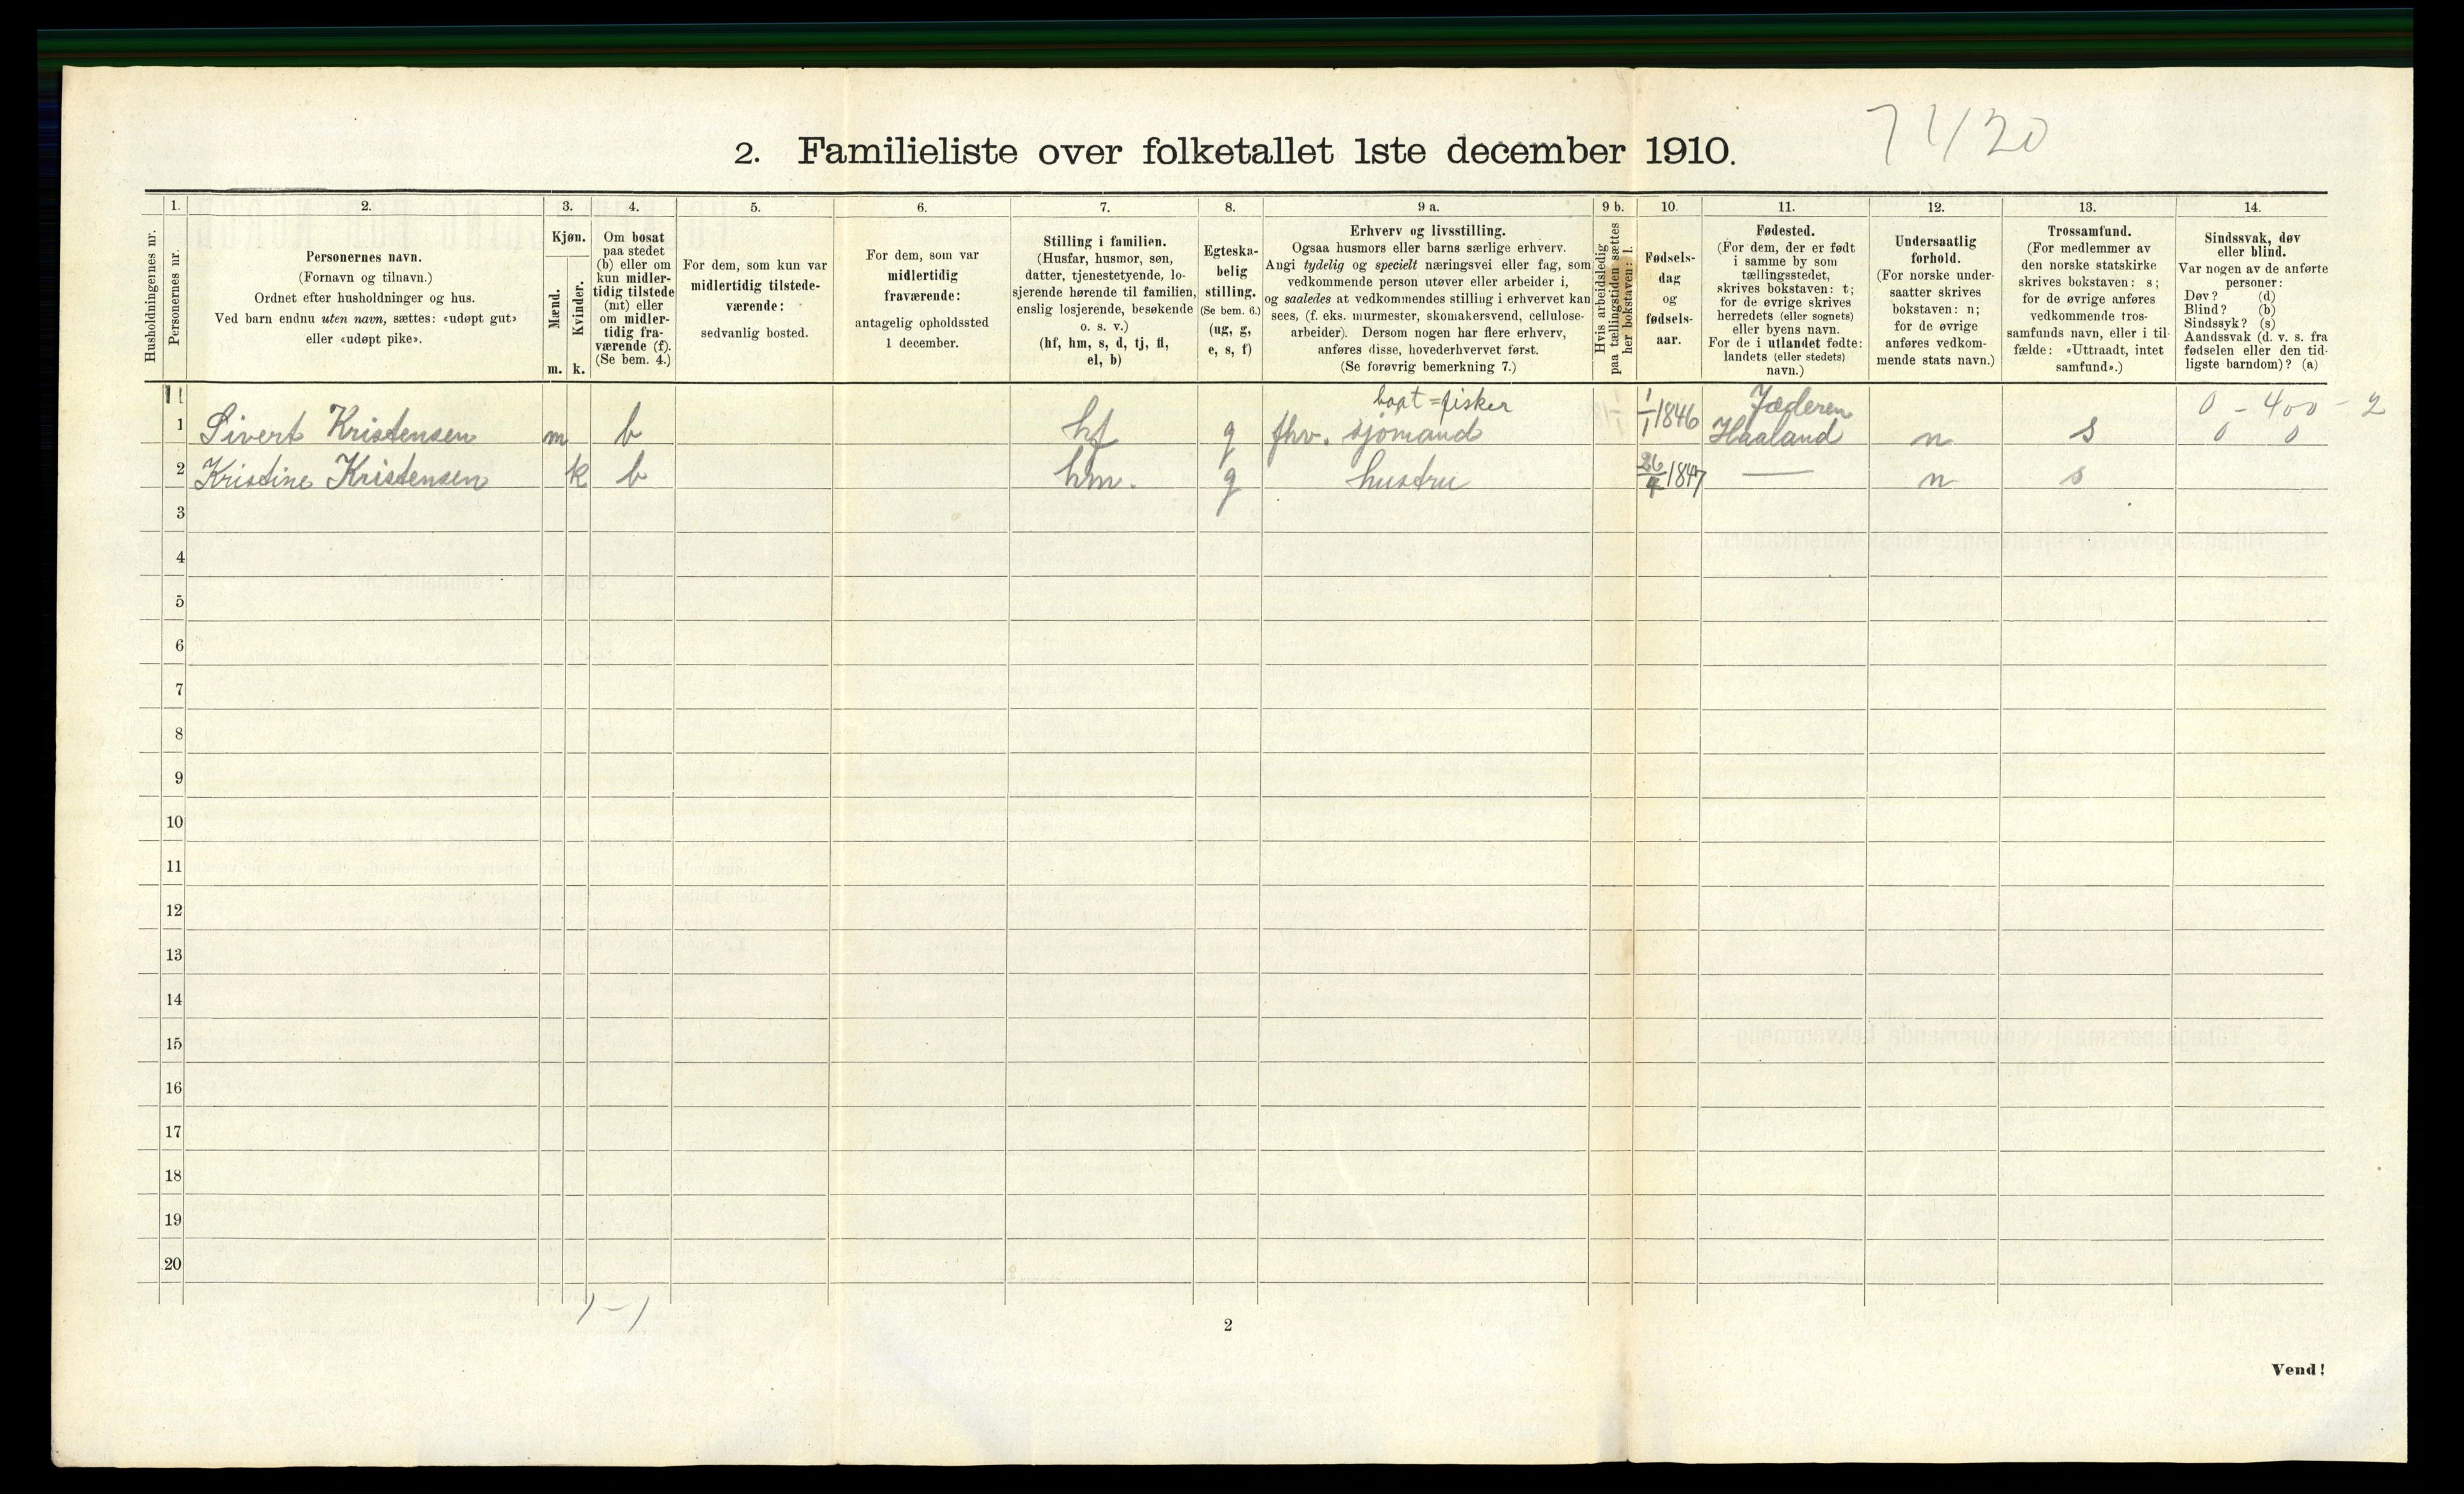 7420
2. Familieliste over folketallet 1ste december 1910.
1. 2. 3. 4. 5. 6. 7. 8. 9 a. 9 b. 10. 11. 12. 13. 14.
Husholdningernes nr.
Personernes nr.
Personernes navn.
(Fornavn og tilnavn.)
Ordnet efter husholdninger og hus.
Ved barn endnu uten navn, sættes: «udøpt gut»
eller «udøpt pike».
Kjøn.
Mænd.
Kvinder.
m. k.
Om bosat
paa stedet
(b) eller om
kun midler-
tidig tilstede
(mt) eller
om midler-
tidig fra-
værende (f).
(Se bem. 4.)
For dem, som kun var
midlertidig tilstede-
værende:
sedvanlig bosted.
For dem, som var
midlertidig
fraværende:
antagelig opholdssted
1 december.
Stilling i familien.
(Husfar, husmor, søn,
datter, tjenestetyende, lo-
sjerende hørende til familien,
enslig losjerende, besøkende
o. s. v.)
(hf, hm, s, d, tj, fl,
el, b)
Egteska-
belig
stilling.
(Se bem. 6.)
(ug, g,
e, s, f)
Erhverv og livsstilling.
Ogsaa husmors eller barns særlige erhverv.
Angi tydelig og specielt næringsvei eller fag, som
vedkommende person utøver eller arbeider i,
og saaledes at vedkommendes stilling i erhvervet kan
sees, (f. eks. murmester, skomakersvend, cellulose-
arbeider). Dersom nogen har flere erhverv,
anføres disse, hovederhvervet først.
(Se forøvrig bemerkning 7.)
Hvis arbeidsledig
paa tællingstiden sættes
her bokstaven: l.
Fødsels-
dag
og
fødsels-
aar.
Fødested.
(For dem, der er født
i samme by som
tællingsstedet,
skrives bokstaven: t;
for de øvrige skrives
herredets (eller sognets)
eller byens navn.
For de i utlandet fødte:
landets (eller stedets)
navn.)
Undersaatlig
forhold.
(For norske under-
saatter skrives
bokstaven: n;
for de øvrige
anføres vedkom-
mende stats navn.)
Trossamfund.
(For medlemmer av
den norske statskirke
skrives bokstaven: s;
for de øvrige anføres
vedkommende tros-
samfunds navn, eller i til-
fælde: «Uttraadt, intet
samfund».)
Sindssvak, døv
eller blind.
Var nogen av de anførte
personer:
Døv? (d)
Blind? (b)
Sindssyk? (s)
Aandssvak (d. v. s. fra
fødselen eller den tid-
ligste barndom)? (a)
baat=fisker Jæderen 0 - 400 - 2
1 Sivert Kristensen m b hf g fhv. sjømand 1/1 1846 Haaland n s 0 0
2 Kristine Kristensen k b hm. g hustru 26/4 1847 — n s
3
4
5
6
7
8
9
10
11
12
13
14
15
16
17
18
19
20
1-1
2
Vend!